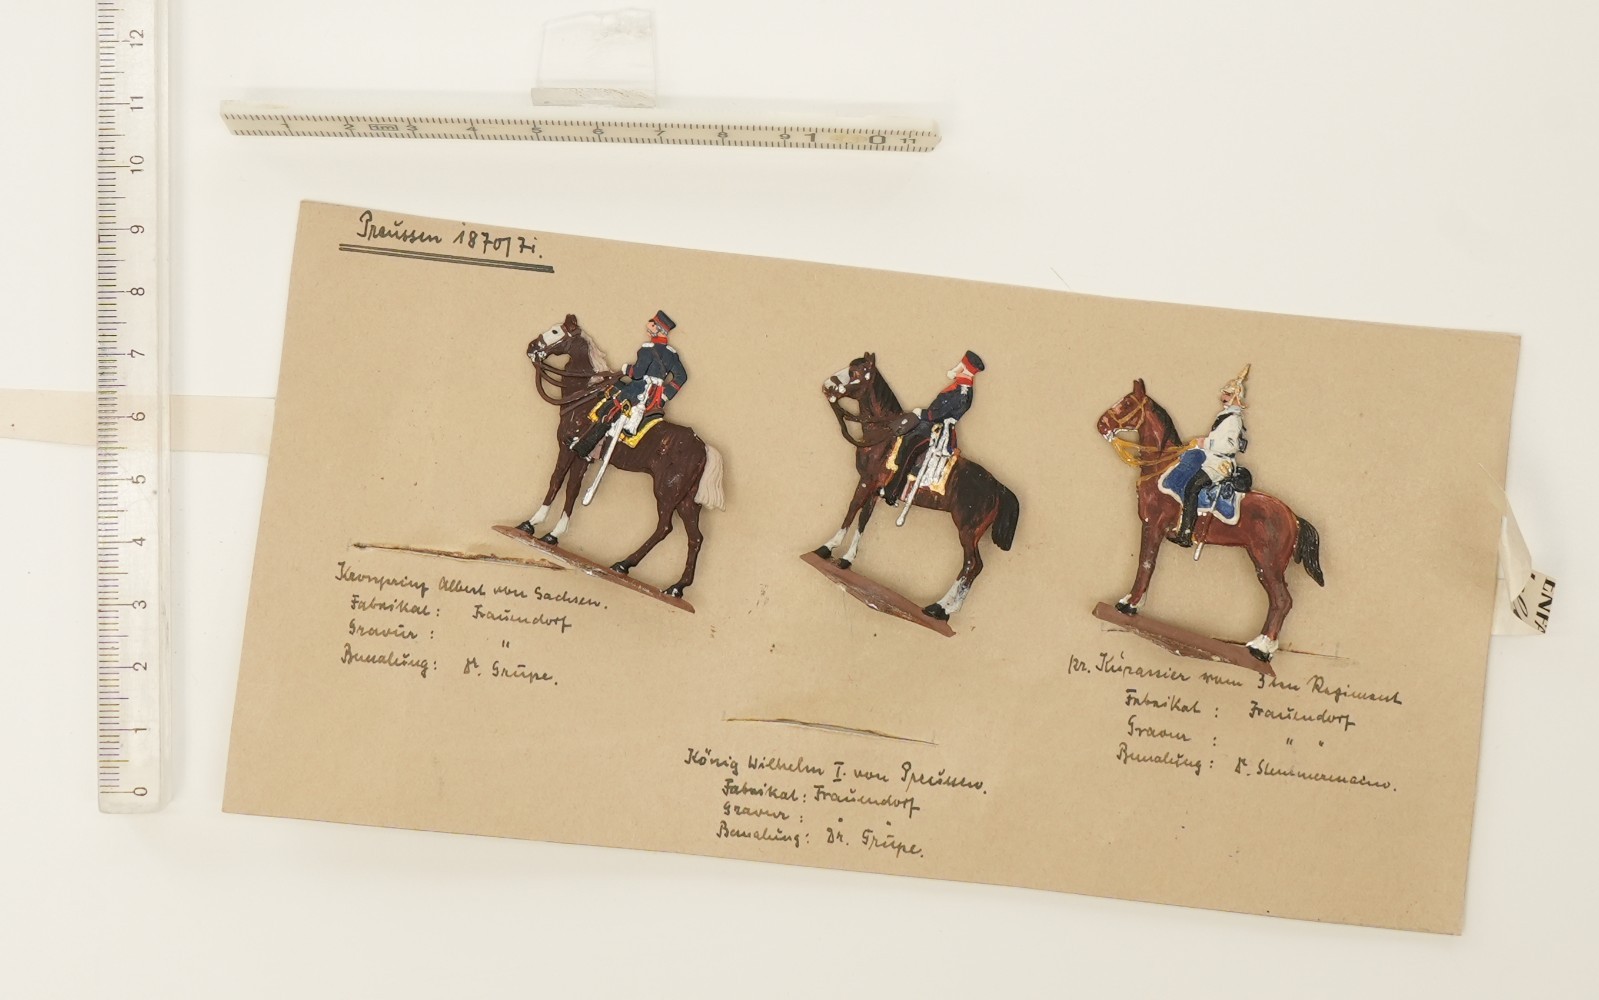 Preussen 1870/71.
Kronprinz Albert von Sachsen.
Fabrikat: Frauendorf
Gravur: "
Bemalung: Dr. Grupe.
König Wilhelm I. von Preussen.
Fabrikat: Frauendorf
Gravur: " "
Bemalung: Dr. Grupe.
pr. Kürassier vom 3ten Regiment
Fabrikat: Frauendorf
Gravur: " "
Bemalung: Dr.
12
11
10
9
8
7
6
5
4
3
2
1
0
1 2 3 4 5 6 7 8 9 10 11